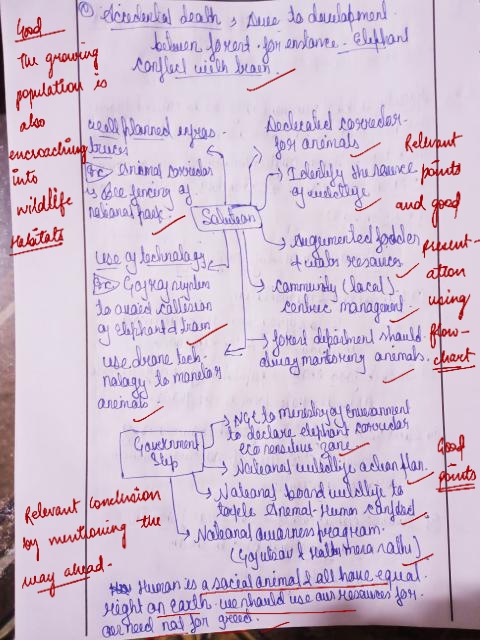 Accidental death → Due to development
between forest. for instance - Elephant
conflict with train.
Good
The growing
population is
also
encroaching
into
wildlife
Habitats
well planned infras-
tructures
Animal corridor
fencing of
national park.
use of technology
system
to avoid collision
of elephant & train
use drone tech-
nology to monitor
animals
Solution
Dedicated corridor
for animals
Identify the
of wildlife
Augmented fodder
+ water resources
community (local)
centric management.
forest department should
monitoring animals.
Relevant
points
and good
present-
ation
using
flow-
chart
Government
Step
NGT to ministry of Environment
to declare elephant corridor
eco sensitive zone
National wildlife action plan.
National board wildlife to
tackle Animal-Human conflict
National awarness program.
Good
points
Relevant conclusion
by mentioning the
way ahead.
Human is a social animal & all have equal
right on earth. we should use our resources for
our need not for greed.